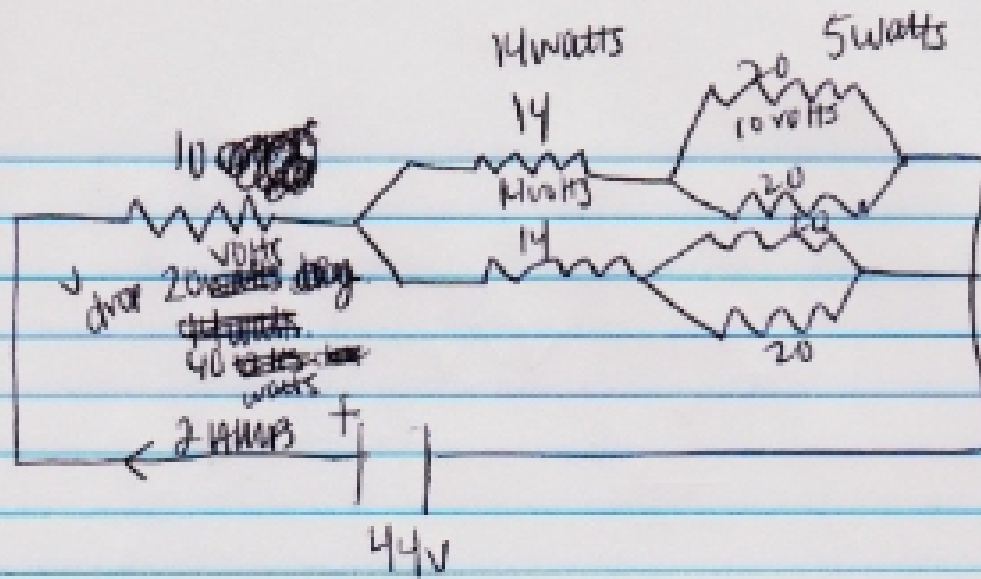 14 watts
5 watts
14
20
10 volts
10
14 volts
20
14
20
volts
V drop 20
40
watts
2 AMPS
+
20
44V